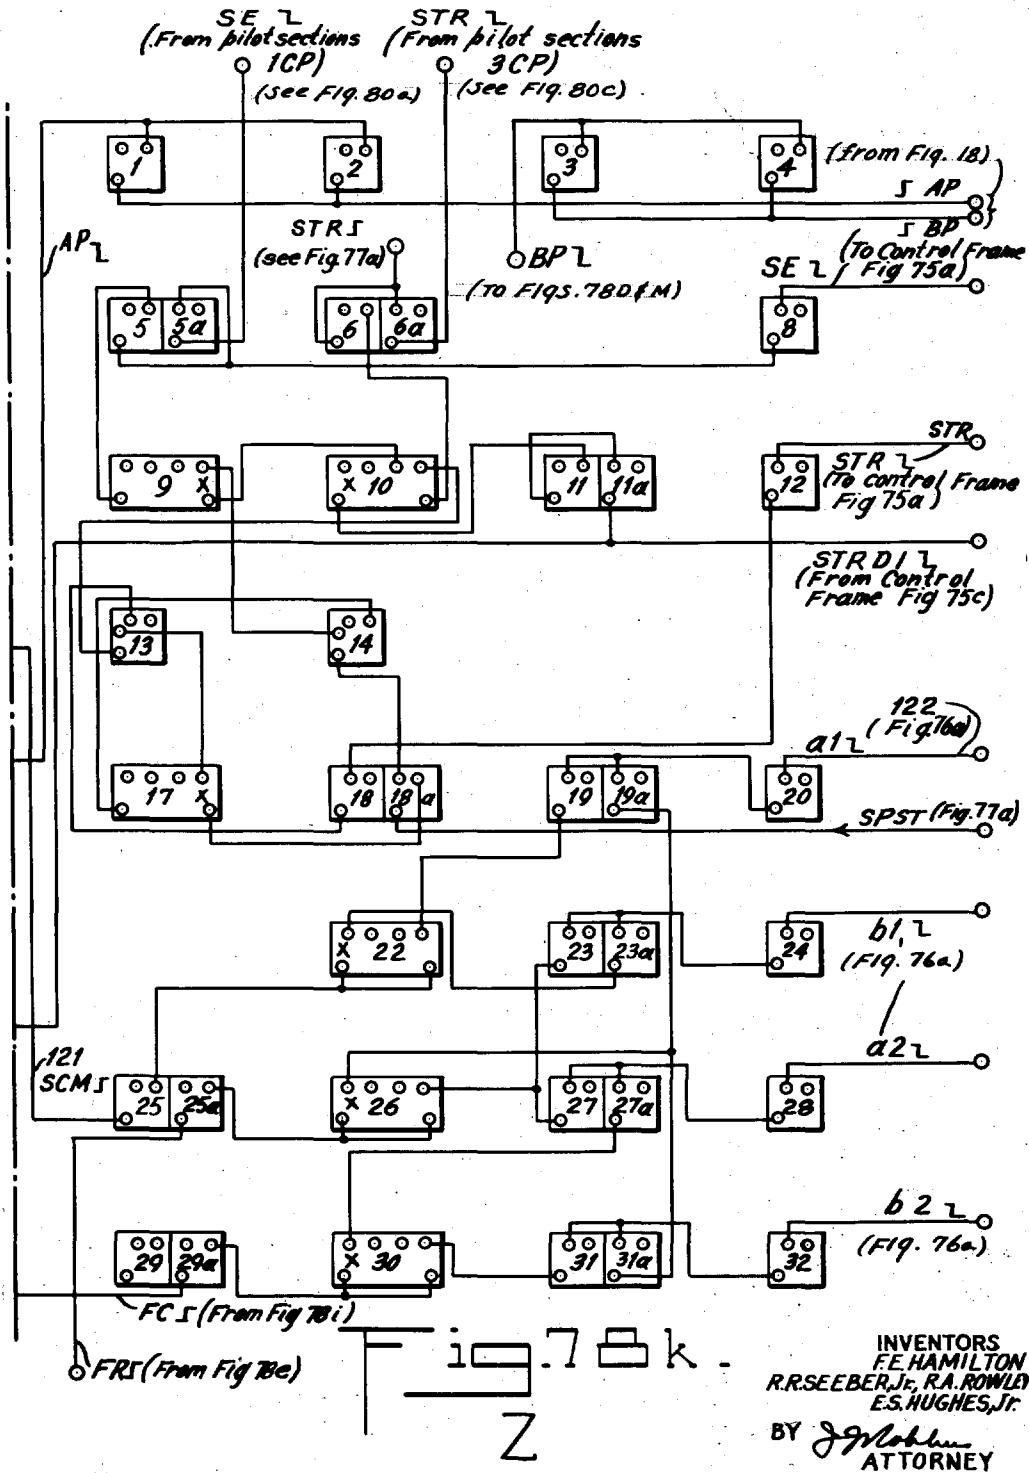 SE ʅ
(From pilot sections
1CP)
(see Fig. 80a)
STR ʅ
(From pilot sections
3CP)
(see Fig. 80c)
1
2
3
4
(from Fig. 18)
ʃ AP
ʃ BP
(To Control Frame
Fig 75a)
AP ʅ
STR ʃ
(see Fig. 77a)
BP ʅ
(TO FIGS. 78D & M)
SE ʅ
5
5a
6
6a
8
STR
STR ʅ
(To control Frame
Fig 75a)
9
X
X
10
11
11a
12
STR D1 ʅ
(From Control
Frame Fig 75c)
13
14
122
(Fig. 76a)
a1 ʅ
17
X
18
18a
19
19a
20
SPST (Fig. 77a)
X
22
23
23a
24
b1, ʅ
(FIG. 76a)
121
SCM ʃ
a2 ʅ
25
25a
X
26
27
27a
28
b2 ʅ
(FIG. 76a)
29
29a
X
30
31
31a
32
FC ʃ (From Fig 78i)
FR ʃ (From Fig 78e)
Fig. 78k.
Z
INVENTORS
F.E. HAMILTON
R.R. SEEBER, Jr., R.A. ROWLEY
E.S. HUGHES, Jr.
BY
ATTORNEY